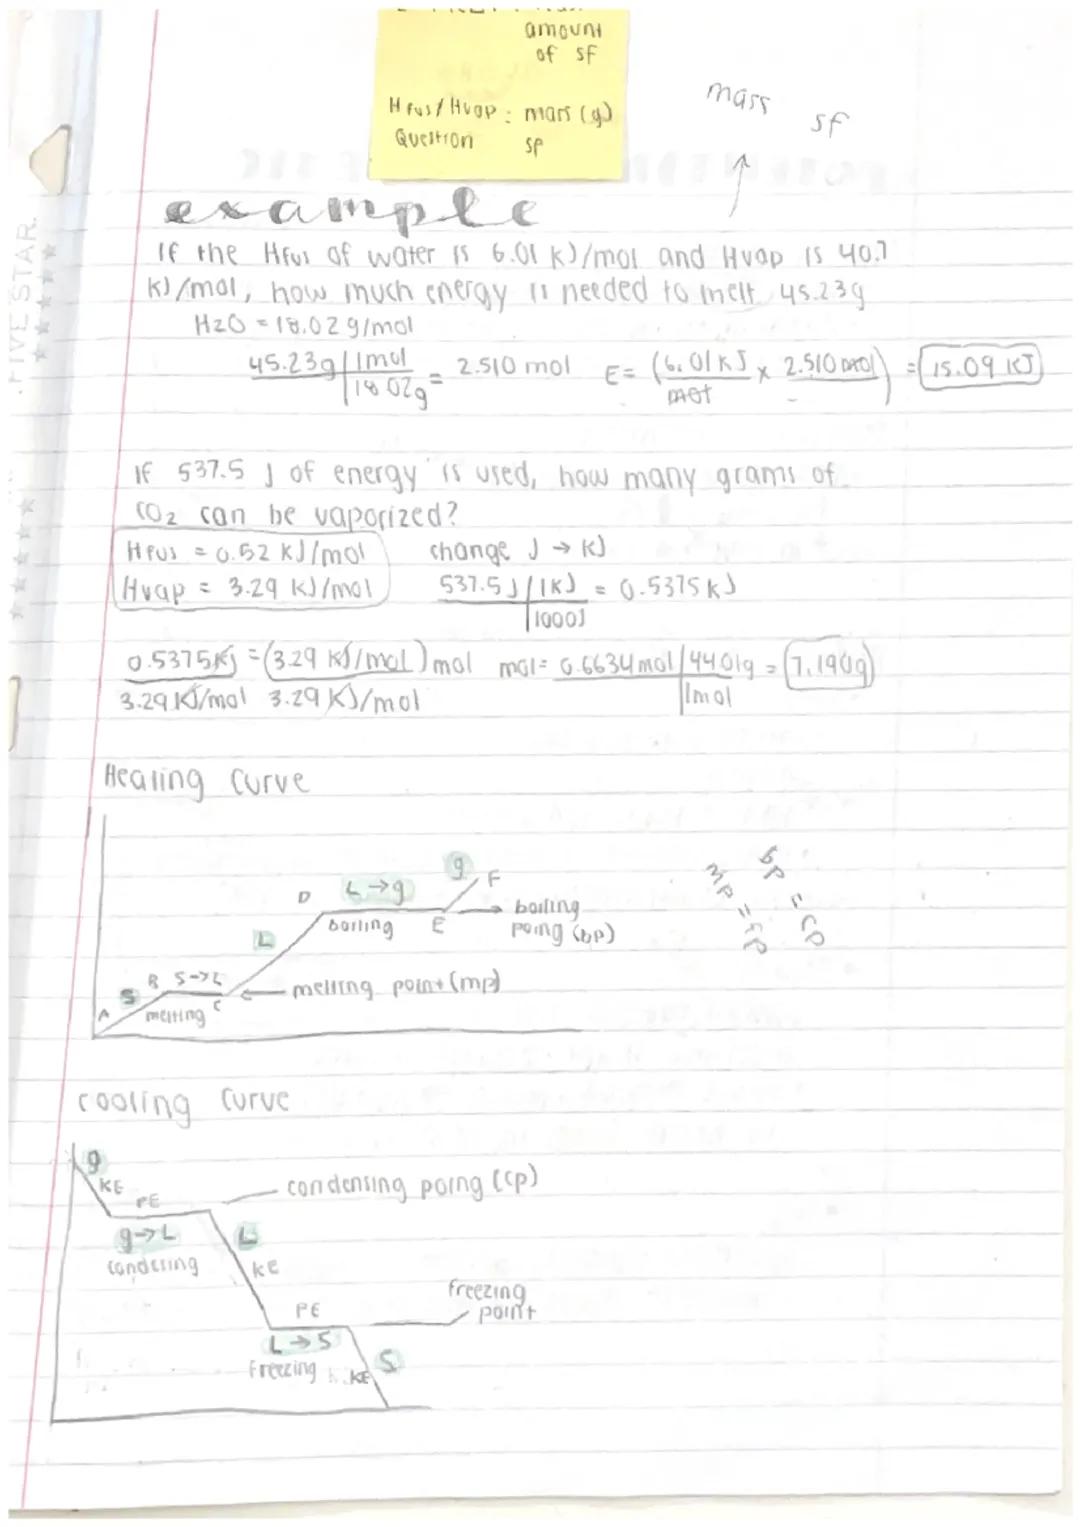 amount
of sf
Hfus/Hvap: mass (g)
Question sf
mass sf
example
If the Hfus of water is 6.01 kJ/mol and Hvap is 40.7
kJ/mol, how much energy is needed to melt 45.23g
H2O = 18.02g/mol
45.23g | 1mol = 2.510 mol E= (6.01 kJ x 2.510 mol) = 15.09 kJ
18.02g mol
If 537.5 J of energy is used, how many grams of
CO2 can be vaporized?
Hfus = 0.52 kJ/mol change J → kJ
Hvap = 3.29 kJ/mol 537.5J | 1kJ = 0.5375 kJ
1000J
0.5375kJ = (3.29 kJ/mol) mol mol= 0.6634 mol | 44.01g = 7.190g
3.29 kJ/mol 3.29 kJ/mol 1mol
Heating Curve
g F
D L→g
boiling E → boiling
poing (bp)
L
B S→L
S melting point (mp)
A melting C
mp = fp
bp = cp
cooling curve
g
KE PE condensing poing (cp)
g→L L
condesing KE
freezing
PE point
L→S
freezing KE S
FIVE STAR